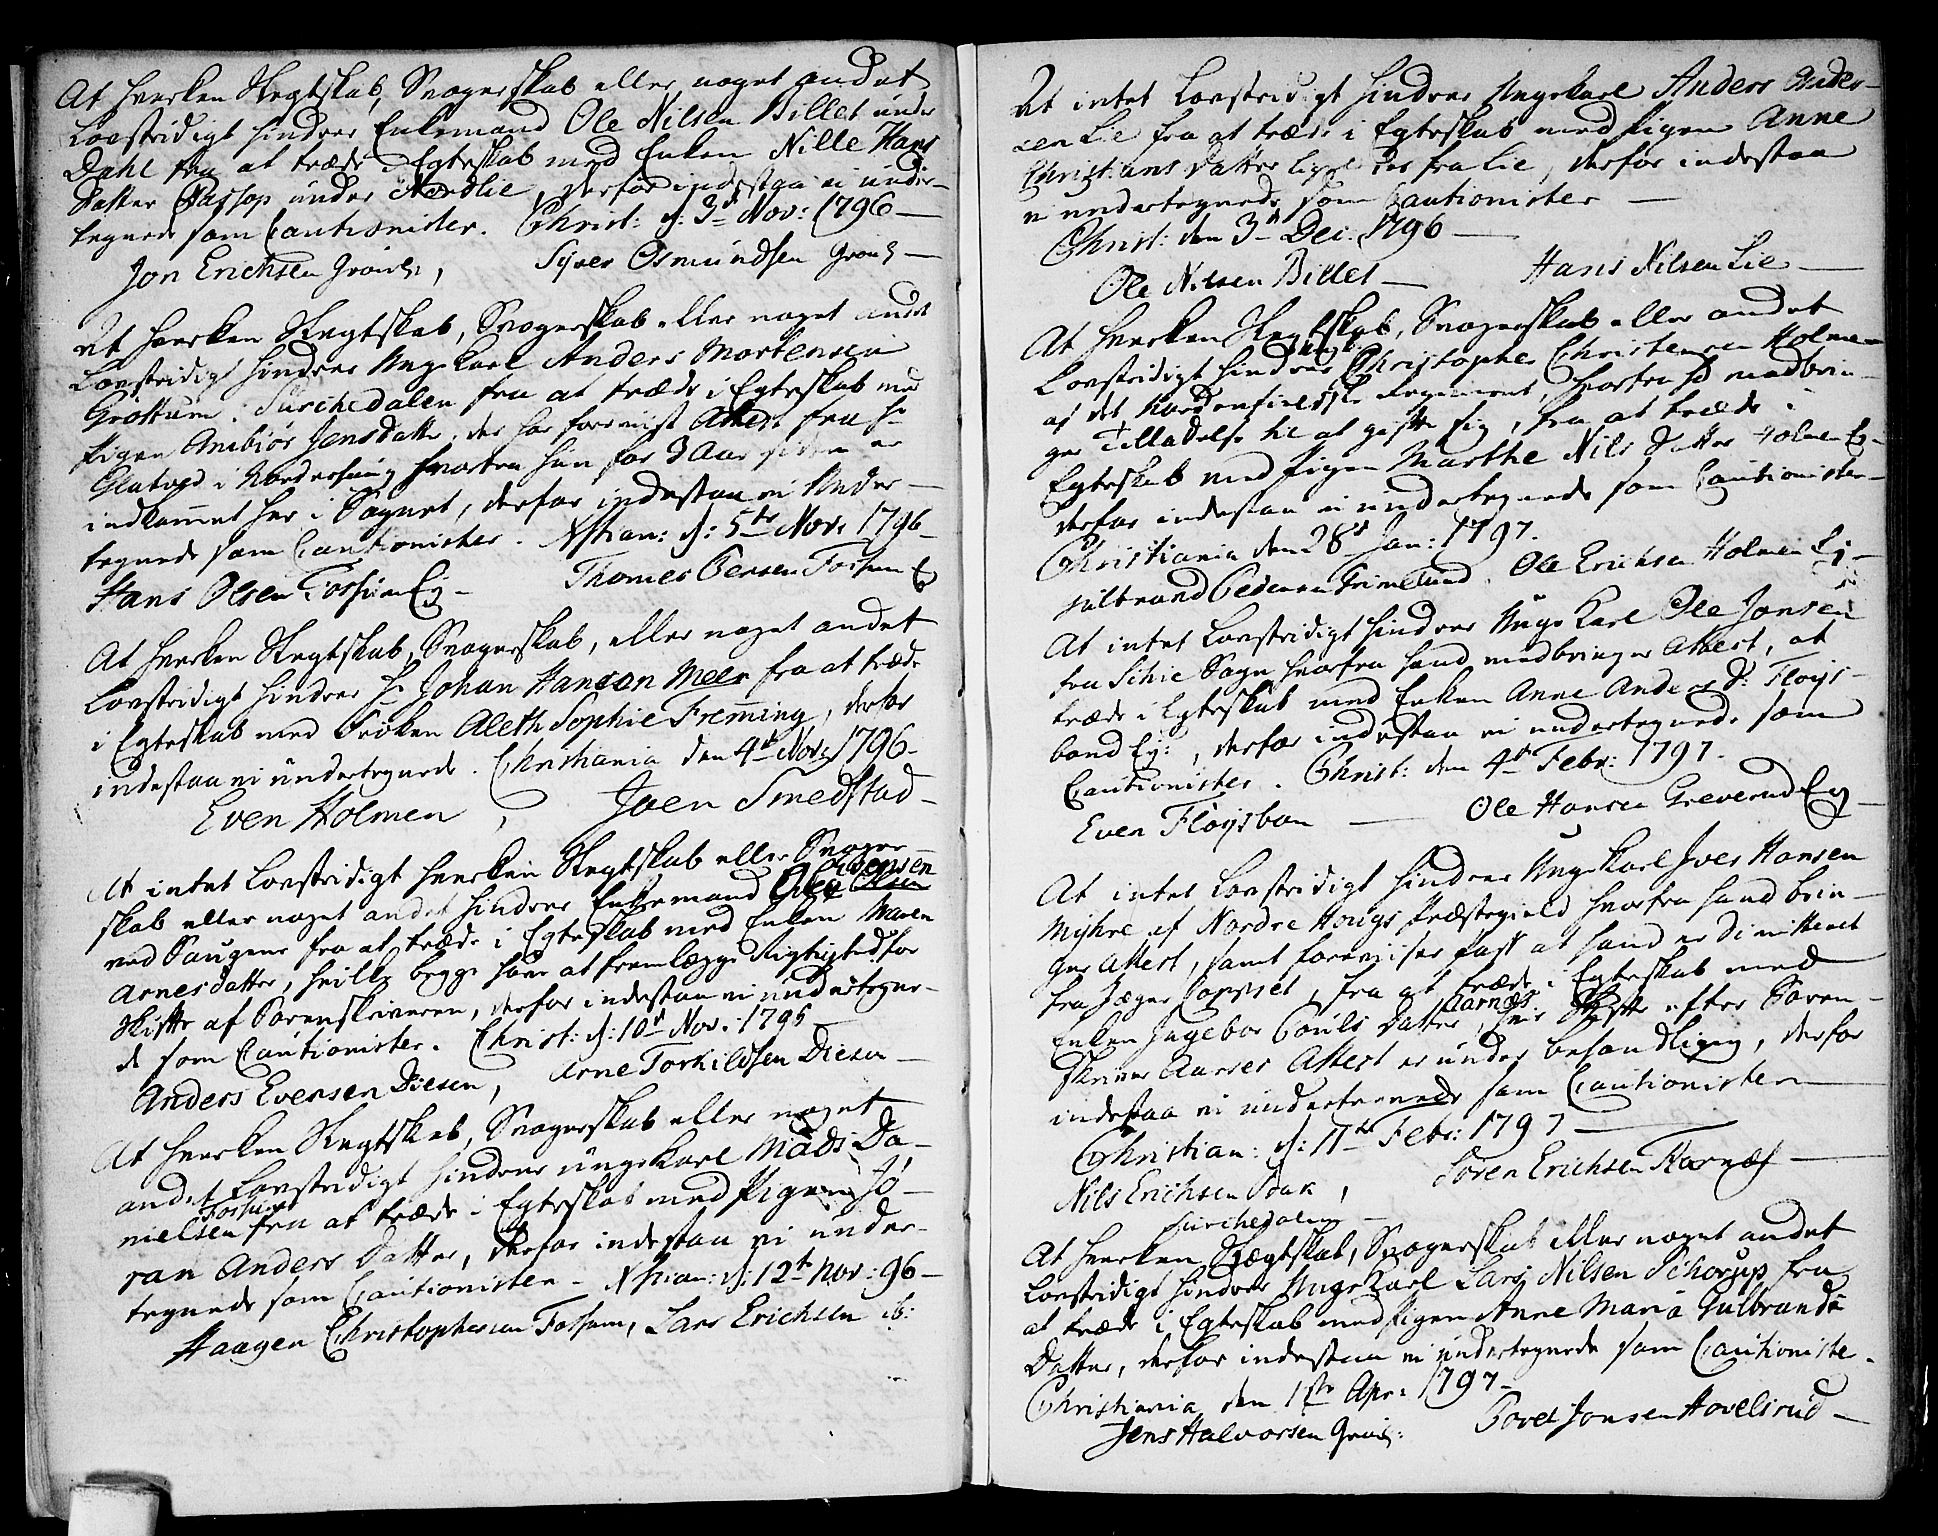 At hverken Slegtskab, Svogerskab eller noget andet
Lovstridigt hindrer Enkemand Ole Nilsen Billet under
Dahl fra at træde i Egteskab med Enken Nille Hans
Datter under Nordlie, derfor indestaa vi under-
tegnede som Cautionister. Christ: d: 3d Nov: 1796 —
Jon Erichsen, Syver Osmundsen —
At hverken Slegtskab, Svogerskab eller noget andet
Lovstridigt hindrer Ungekarl Anders Mortensen
Grøttum i Sørchedalen fra at træde i Egteskab med
Pigen Anibiør Jensdatter, der har foreviist Attest fra Hr
i hvorfra hun for 3 Aar siden er
indkommet her i Sognet, derfor indestaa vi Under-
tegnede som Cautionister. Xstian: d: 5te Nov: 1796 —
Hans Olsen Fossum Ej — Thomes Persen Fossum Ej
At hverken Slegtskab, Svogerskab, eller noget andet
Lovstridigt hindrer Hr Johan Hanson Meer fra at træde
i Egteskab med Frøken Aleth Sophie Fremming, derfor
indestaa vi undertegnede. Christiania den 4de Nov: 1796 —
Even Holmen, Joen Smedstad —
At intet Lovstridigt hverken Slegtskab eller Svoger
skab eller noget andet hindrer Enkemand Ole Evensen
ved Saugene fra at træde i Egteskab med Enken Maren
Arnesdatter, hvilke begge har at fremlægge Rigtighed for
Skifte af Sorenskriveren, derfor indestaa vi undertegne-
de som Cautionister. Christ: d: 10d Nov: 1796
Anders Evensen Diesen, Arne Torkildsen Diesen —
At hverken Slegtskab, Svogerskab eller noget
andet Lovstridigt hindrer ungekarl Mads Da-
nielsen Fossum fra at træde i Egteskab med Pigen Jø-
ran Anders Datter, derfor indestaa vi under-
tegnede som Cautionister — Xstian: d: 12te Nov: 96 —
Haagen Christophersen Fossum, Lars Erichsen ib:
At intet Lovstridigt hindrer Ungekarl Anders Ander-
sen Lie fra at træde i Egteskab med Pigen Anne
Christians Datter ligeledes fra Lie, derfor indestaa
vi undertegnede som Cautionister —
Christ: den 3d Dec. 1796 —
Ole Nilsen Billet — Hans Nilsen Lie —
At hverken Slegtskab, Svogerskab eller andet
Lovstridigt hindrer Christopher Christensen Holmen
af det Nordenfieldske Regiment, hvorfra hd medbrin-
ger Tilladelse til at gifte sig, fra at træde i
Egteskab med Pigen Marthe Nils Datter Holmen Ej-
derfor indestaa vi undertegnede som Cautionister —
Christiania den 28d Jan: 1797.
Hilbrand Pedersen Grimelund. Ole Erichsen Holmen Ej —
At intet Lovstridigt hindrer Ungekarl Ole Jonsen
fra Schie Sogn hvorfra hand medbringer Attest, at
træde i Egteskab med Enken Anne Anders Dr Fløys-
bond Ej:, derfor indestaa vi undertegnede som
Cautionister. Christ: den 4de Febr: 1797.
Even Fløysbon — Ole Hansen Greverud Ej —
At intet Lovstridigt hindrer Ungekarl Iver Hansen
Myhre af Nordre Hougs Præstegield hvorfra hand brin-
ger Attest, samt foreviiser Pass at hand er Dimitteret
fra Jæger Corpset, fra at træde i Egteskab med
Enken Ingebor Pouls Datter Aarnæs, hvis Skifte efter Soren-
skriver Aarses Attest er under behandling, derfor
indestaa vi undertegnede som Cautionister —
Christian: d: 11te Febr: 1797 —
Nils Erichsen, Sören Erichsen Aarnæs —
Surchedalen —
At hverken Slægtskab, Svogerskab eller noget andet
Lovstridigt hindrer Ungekarl Lars Nilsen Schorup fra
at træde i Egteskab med Pigen Anne Maria Gulbrands
Datter, derfor indestaa vi undertegnede som Cautioniste.
Christiania den 1ste Apr: 1797 —
Jens Halvorsen, Povel Jonsen Hovelsrud —